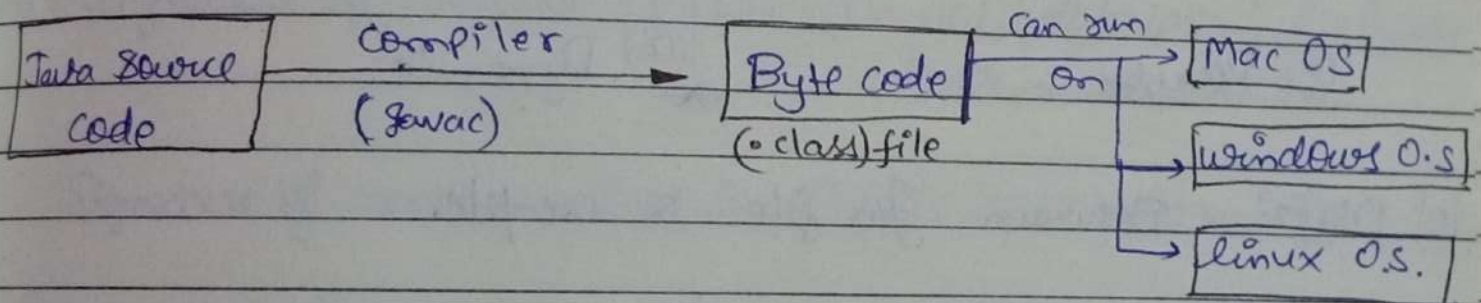 Java Source
code
Compiler
(Javac)
Byte code
(.class) file
Can run
on
Mac OS
windows O.S
linux O.S.